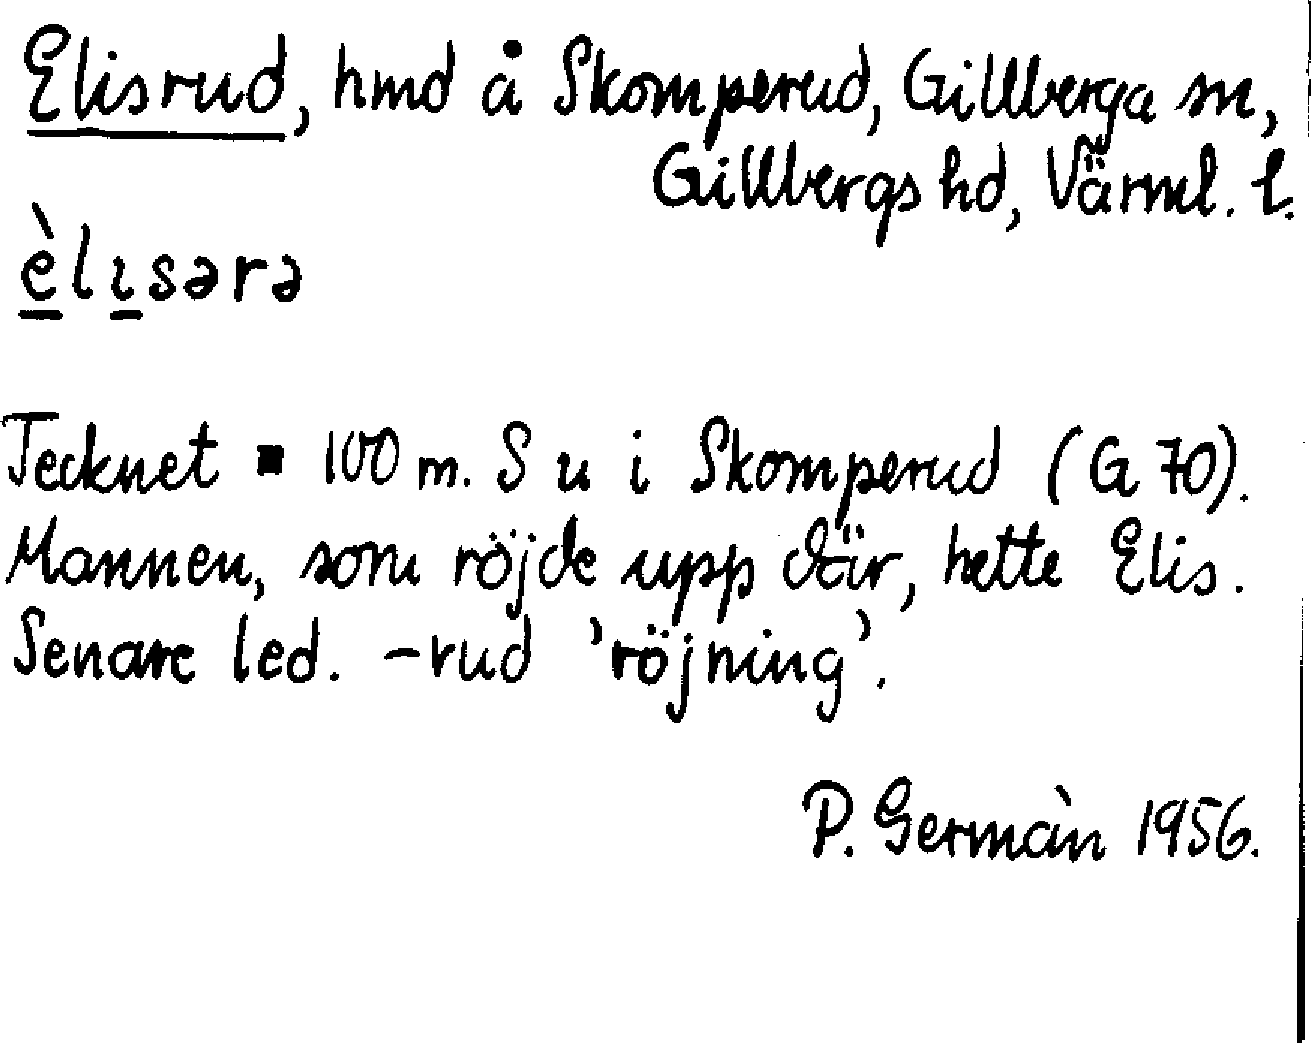 Elisrud, hmd å Skomperud, Gillberga sn,
Gillbergs hd, Värml. l.
èlısərə
Tecknet ▪ 100 m. S u i Skomperud (G 70).
Mannen, som röjde upp där, hette Elis.
Senare led. -rud 'röjning'.
P. Germàn 1956.